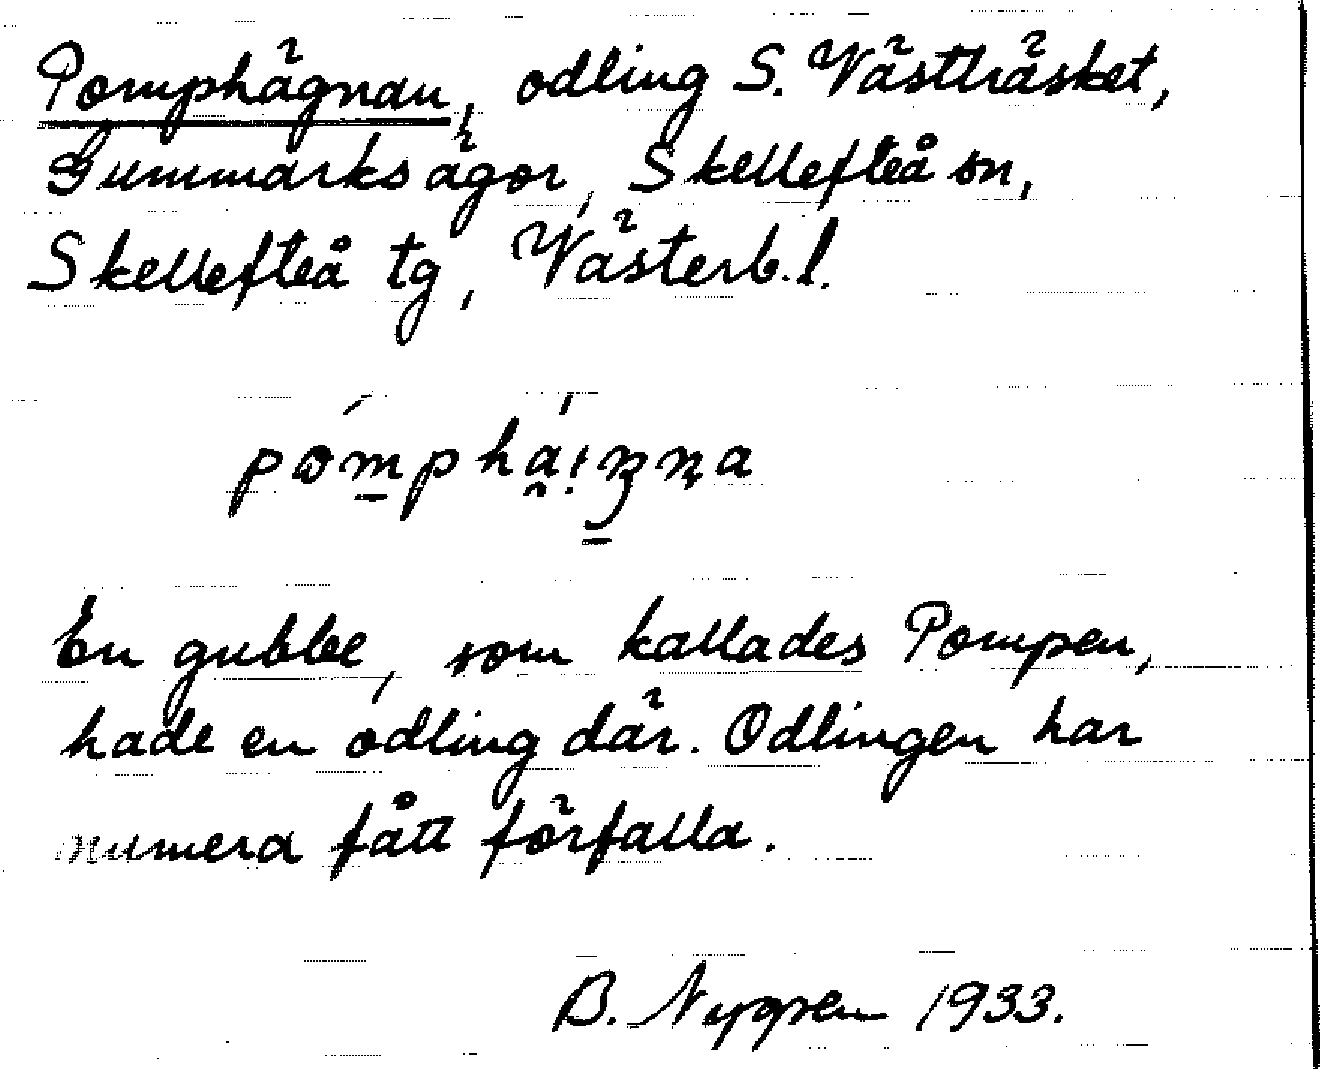 Pomphägnan, odling S. Västträsket,
Gummarksägor, Skellefteå sn,
Skellefteå tg, Västerb. l.
En gubbe, som kallades Pompen,
hade en odling där. Odlingen har
numera fått förfalla.
B. Nygren 1933.